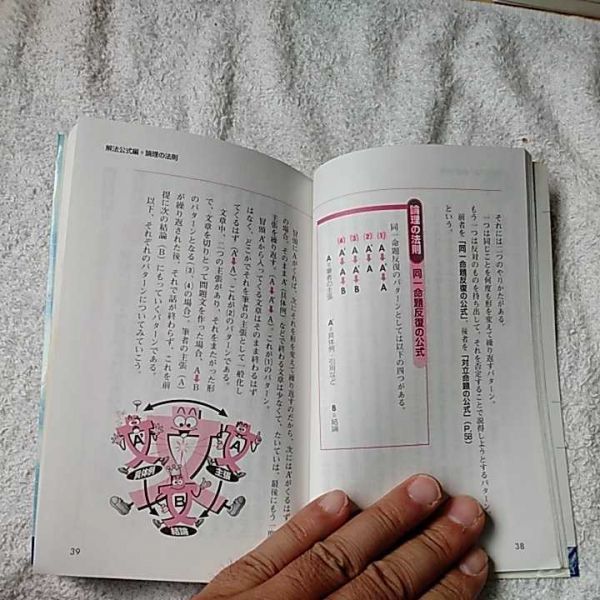 それには二つのやりかたがある。
一つは同じことを何度も形を変えて繰り返すパターン。
もう一つは反対のものを持ち出して、それを否定することで説得しようとするパターン。
前者を「同一命題反復の公式」、後者を「対立命題の公式」(P.58)
という。
論理の法則 同一命題反復の公式
同一命題反復のパターンとしては以下の四つがある。
(1) A⬇A'⬇A
(2) A'⬇A
(3) A⬇A'⬇B
(4) A'⬇A⬇B
A=筆者の主張 A'=具体例・引用など B=結論
38
解法公式編●論理の法則
冒頭Aがくれば、次にそれを形を変えて繰り返すのだから、次にはA'がくるはず
の場合、そのままA'(具体例)などで終わる文章は少なくて、たいていは、最後にもう一度
主張を繰り返す。(A⬇A'⬇A)。これが(1)のパターン。
冒頭A'から入ってくる文章はそのまま終わるはず
はなく、どこかでそれを筆者の主張として一般化し
てくるはず(A'⬇A)。これが(2)のパターンである。
文章中、二つの主張があり、それをまたがった形
で、文章を切りとって問題文を作った場合、A⬇B
のパターンとなる(3)(4)の場合)。筆者の主張(A)
が繰り返された後、それで話が終わらず、これを前
提に次の結論(B)にもっていくパターンである。
以下、それぞれのパターンについてみていこう。
A'
A
B
具体例
主張
結論
39